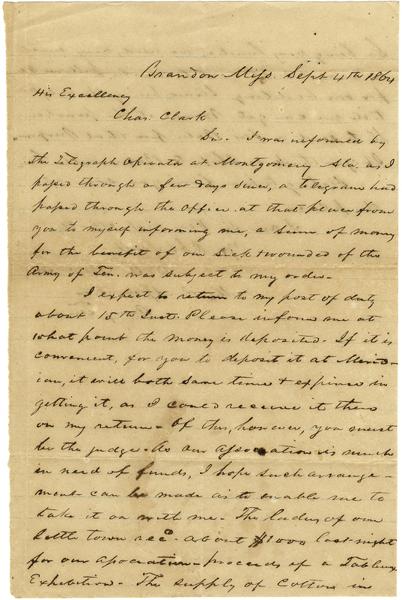 Brandon Miss. Sept 4th 1864
His Excellency
Chas. Clark
Sir. I was informed by
the Telegraph Operator at Montgomery Ala. as I
passed through a few days since, a telegram had
passed through the Office at that place from
you to myself informing me, a sum of money
for the benefit of our sick & wounded of the
Army of Ten. was subject to my order.
I expect to return to my post of duty
about 15th Inst. Please inform me at
what point the money is deposited. If it is
convenient, for you to deposit it at Merid-
ian, it will both save time & expense in
getting it, as I could receive it there
on my return. Of this, however, you must
be the judge. As our association is much
in need of funds, I hope such arrange-
ment can be made as to enable me to
take it on with me. The ladies of our
little town recd. about $1000 last night
for our association. proceeds of a Tableux
Exhibition. The supply of Cotton in